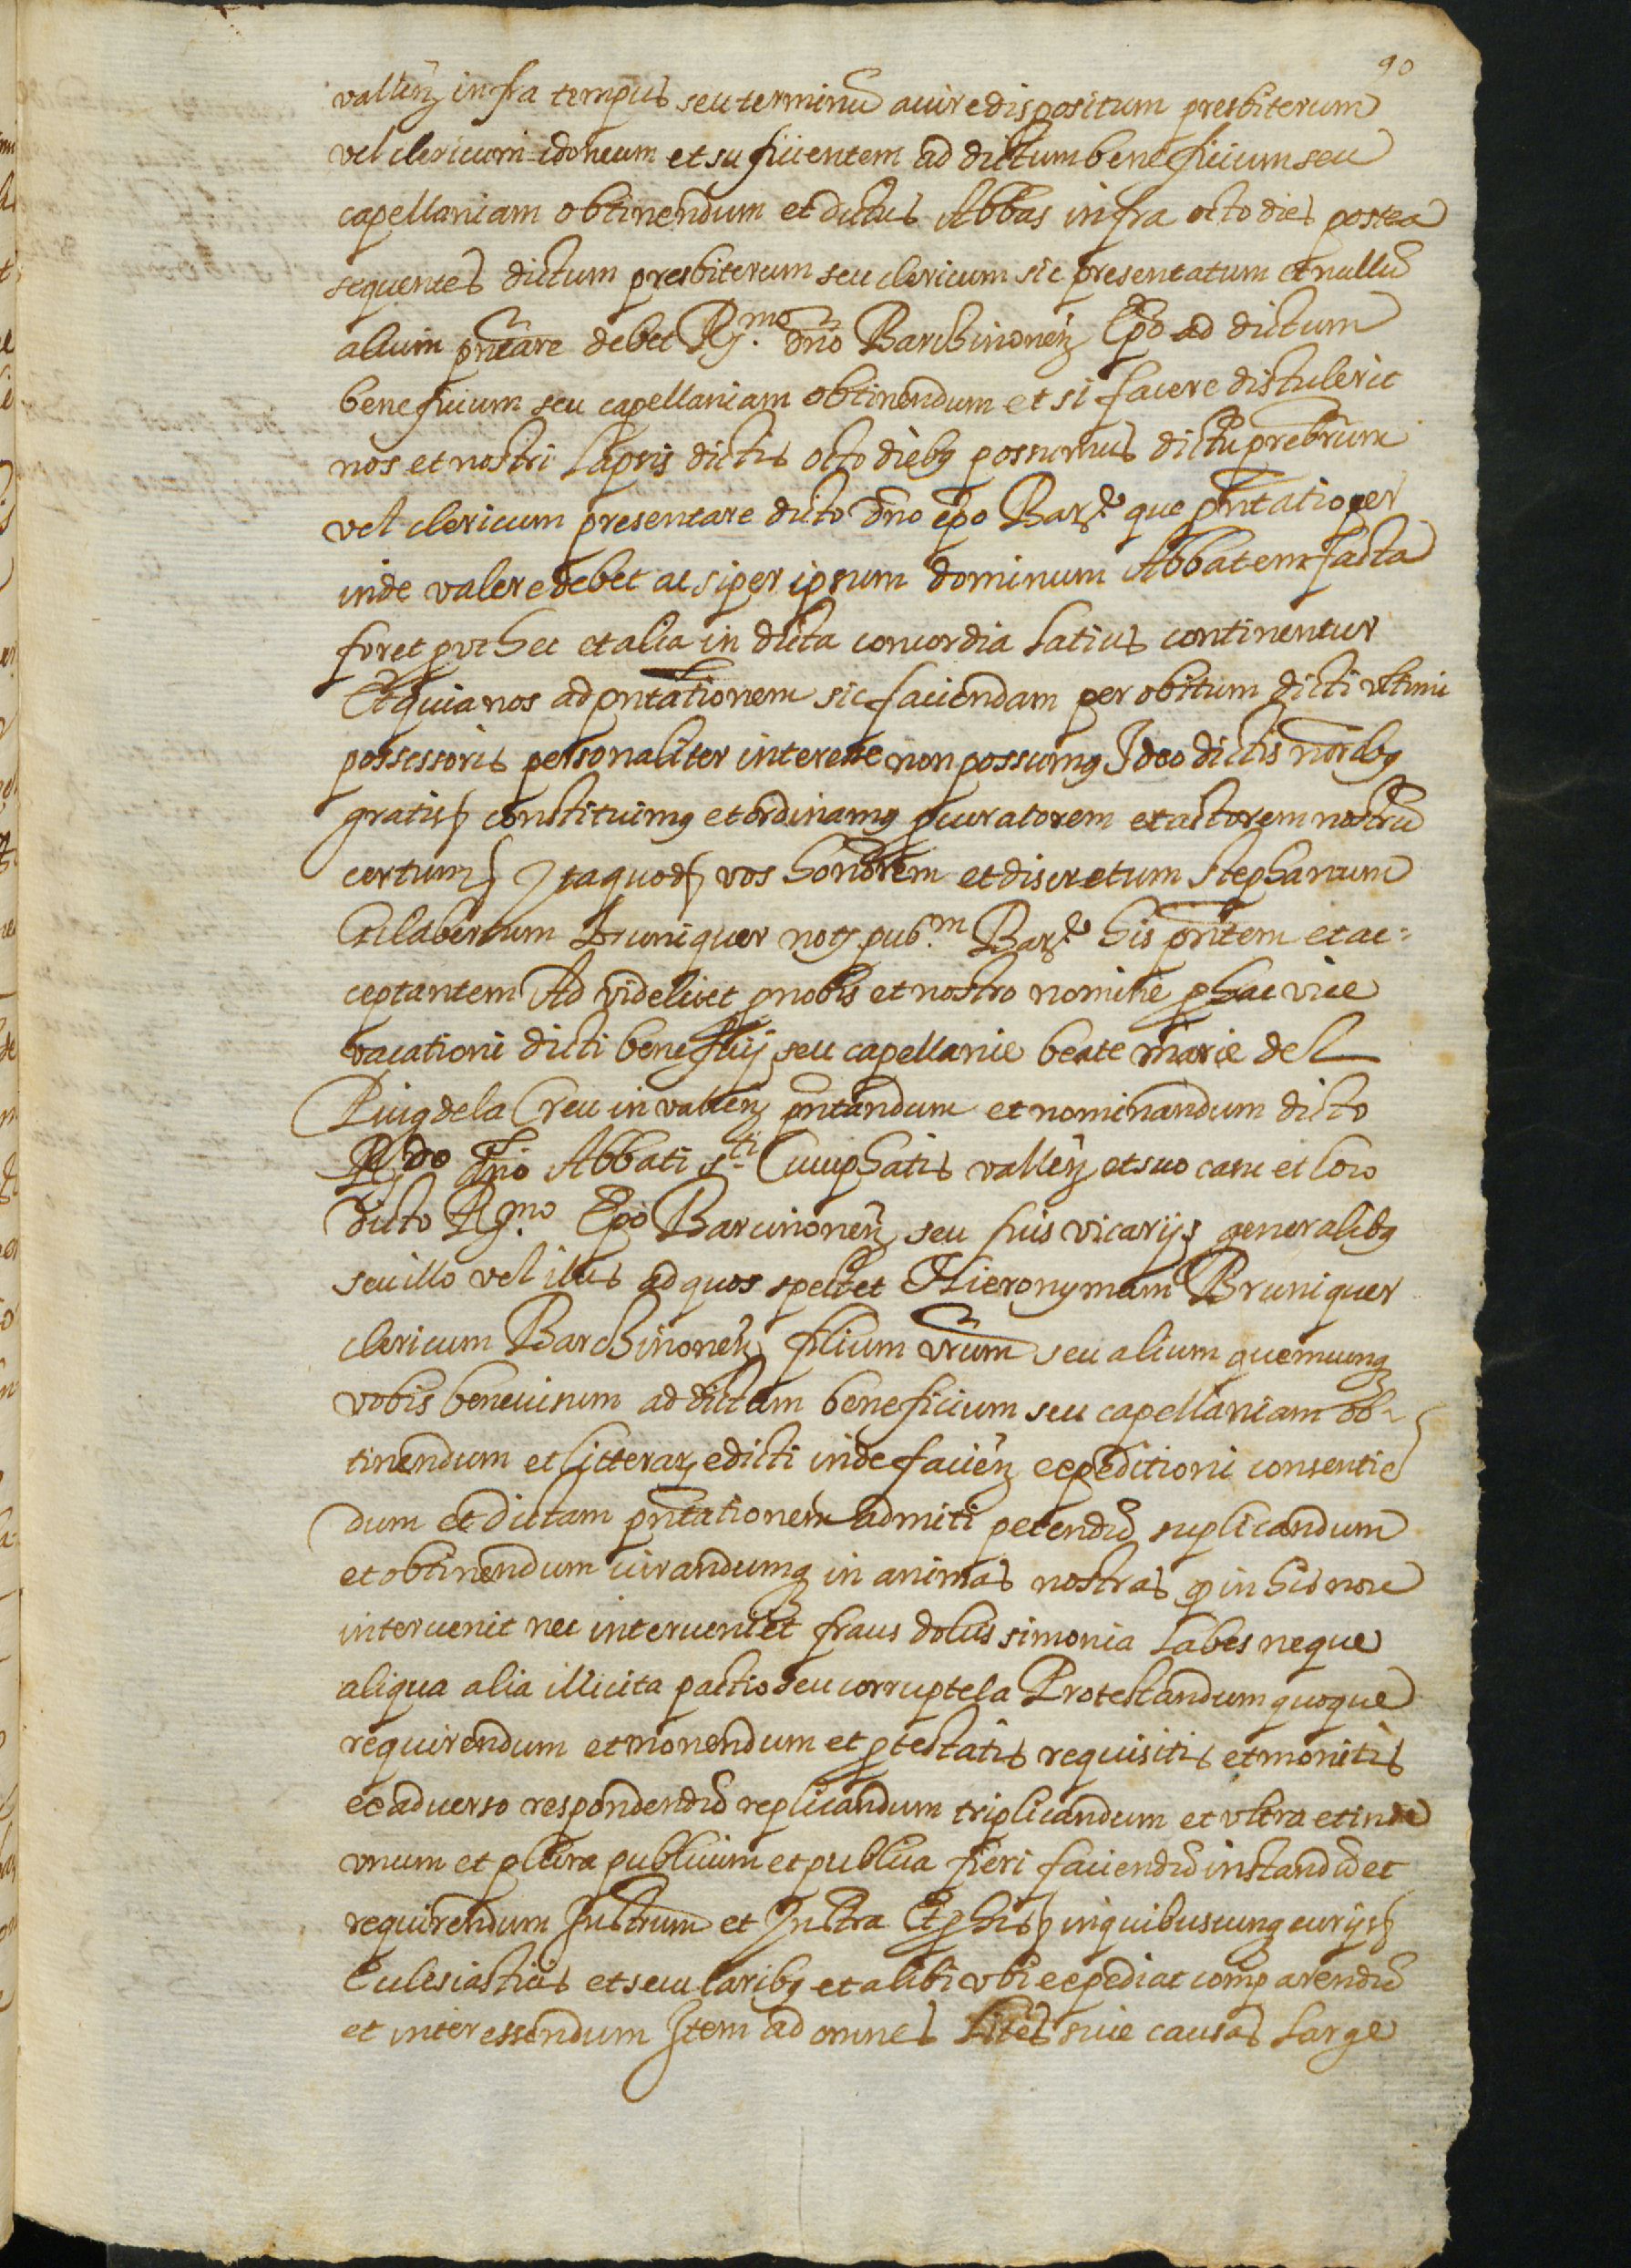 90
vallen̄ infra tempus seu terminū a iure dispositum presbiterum
vel clericum idoneum et suficientem ad dictum beneficium seu
capellaniam obtinendum et dictus Abbas infra octo dies postea
sequentes dictum presbiterum seu clericum sic presentatum et nullū
alium pn̄tare debet R.mo dn̄o Barchinonen̄ Ep̄o ad dictum
beneficium seu capellaniam obtinendum et si facere distulerit
nos et nostri lapsis dictis octo diebꝰ possumus dictū prēbrum
vel clericum presentare dicto dn̄o ep̄o Barᵉ que pn̄tatio per
inde valere debet ac si per ipsum dominum Abbatem facta
foret prt hec et alia in dicta concordia latius continentur
Et quia nos ad pn̄tationem sic faciendam per obitum dicti vltimi
possessoris personaliter interesse non possumꝰ Ideo dictis noībꝰ
gratis constituimꝰ et ordinamꝰ ꝓcuratorem et actorem nostrū
certum Ita quod vos honorem et discretum Stephanum
Gilabertum Bruniquer not. pub.m Barᵉ his pn̄tem et ac=
ceptantem Ad videlicet ꝓ nobis et nostro nomine ꝓ hac vice
vacationi dicti beneficij seu capellanie beate marie del
Puig de la Creu in vallen̄ pn̄tandum et nominandum dicto
R.do dn̄o Abbati S.ti Cucuphatis vallen̄ et suo casu et loco
dicto R.mo Ep̄o Barcinonen̄ seu suis vicarijs generalibꝰ
seu illo vel illis ad quos spectet Hieronymum Bruniquer
clericum Barchinonen̄ filium vr̄um seu alium quemcunqꝫ
vobis benevisum ad dictum beneficium seu capellaniam ob-
tinendum et litterarꝫ edicti inde facien̄ expeditioni consentiē
dum et dictam pn̄tationem admiti petendū suplicandum
et obtinendum iurandumqꝫ in animas nostras ꝙ in his non
interuenit nec interueniet fraus dolus simonia labes neque
aliqua alia illicita pactio seu corruptela Protestandum quoque
requirendum et monendum et ꝓtestatis requisitis et monitis
ex aduerso respondendū replicandum triplicandum et vltra et inde
vnum et plura publicum et publica fieri faciendū instandū et
requirendum Instrum̄ et Instra Et ꝓ his in quibuscunqꝫ curijs
Eclesiasticis et secularibꝰ et alibi vbi expediat comparendū
et interessendum Item ad omnes lites siue causas large